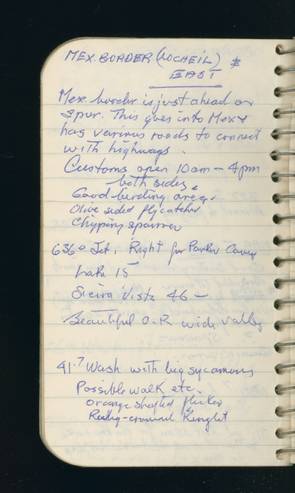 MEX. BORDER (LOCHEIL) &
EAST
Mex. border is just ahead on
spur. This goes into Mex &
has various roads to connect
with highways.
Customs open 10am - 4pm
both sides.
Good birding area.
Olive sided flycatcher
Chipping sparrow
63.6 Jct. Right for Parker Canyon
Lake 15
Sierra Vista 46 -
Beautiful O-R wide valley
41.7 Wash with big sycamores
Possible walk etc.
Orange shafted flicker
Ruby-crowned Kinglet